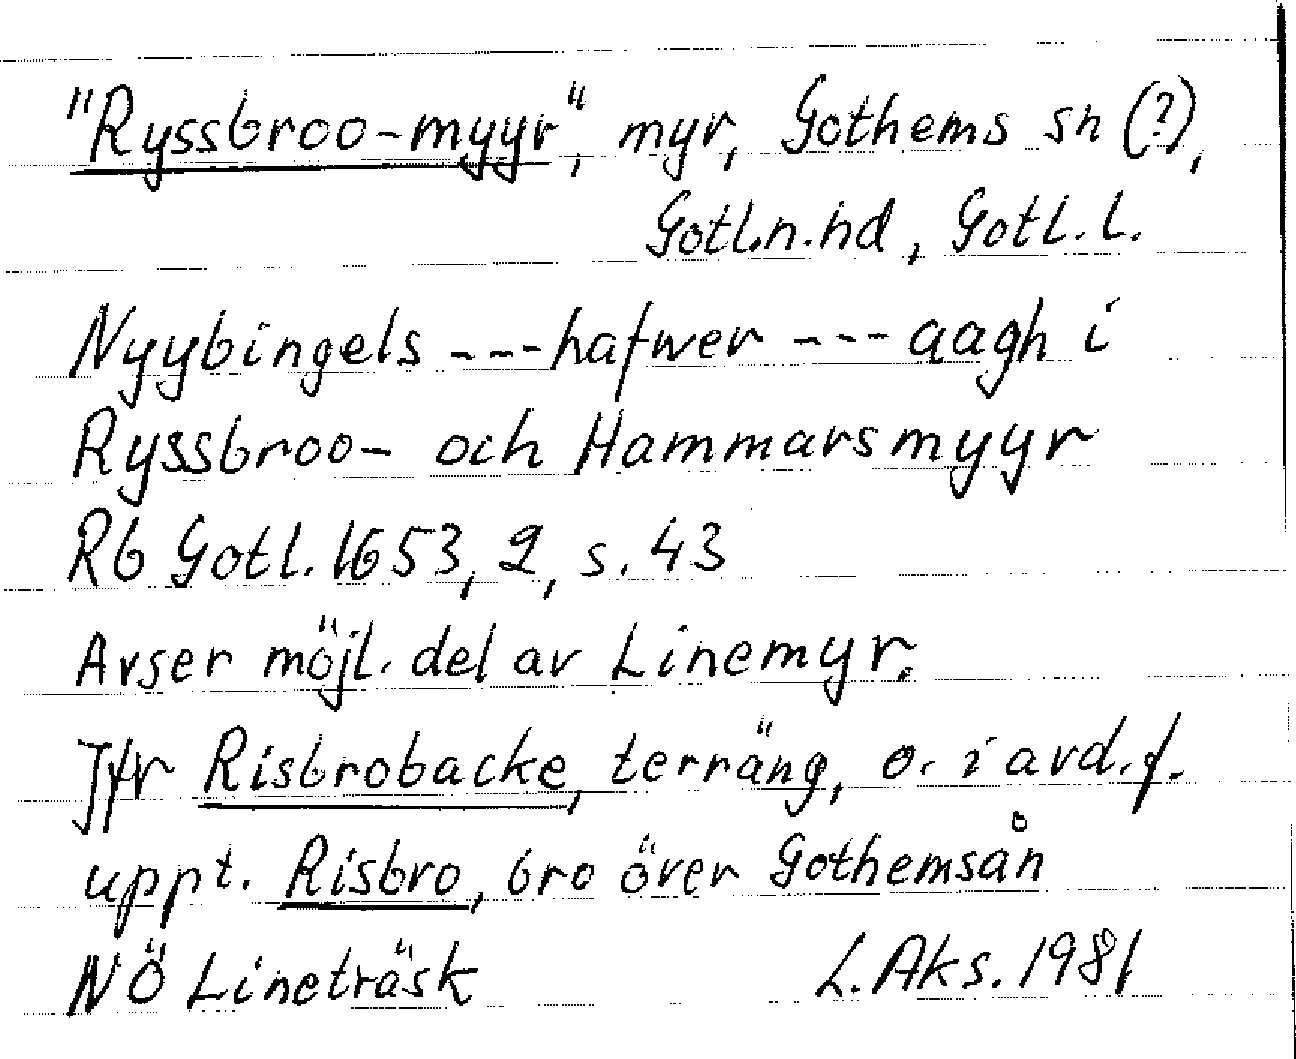 "Ryssbroo-myyr", myr, Gothems sn (?),
Gotl.n.hd, Gotl.l.
Nyybingels ---hafwer --- aagh i
Ryssbroo- och Hammarsmyyr
Rb Gotl. 1653, 2, s. 43
Avser möjl. del av Linemyr.
Jfr Risbrobacke, terräng, o. i avd. f.
uppt. Risbro, bro över Gothemsån
NÖ Lineträsk L. Aks. 1981